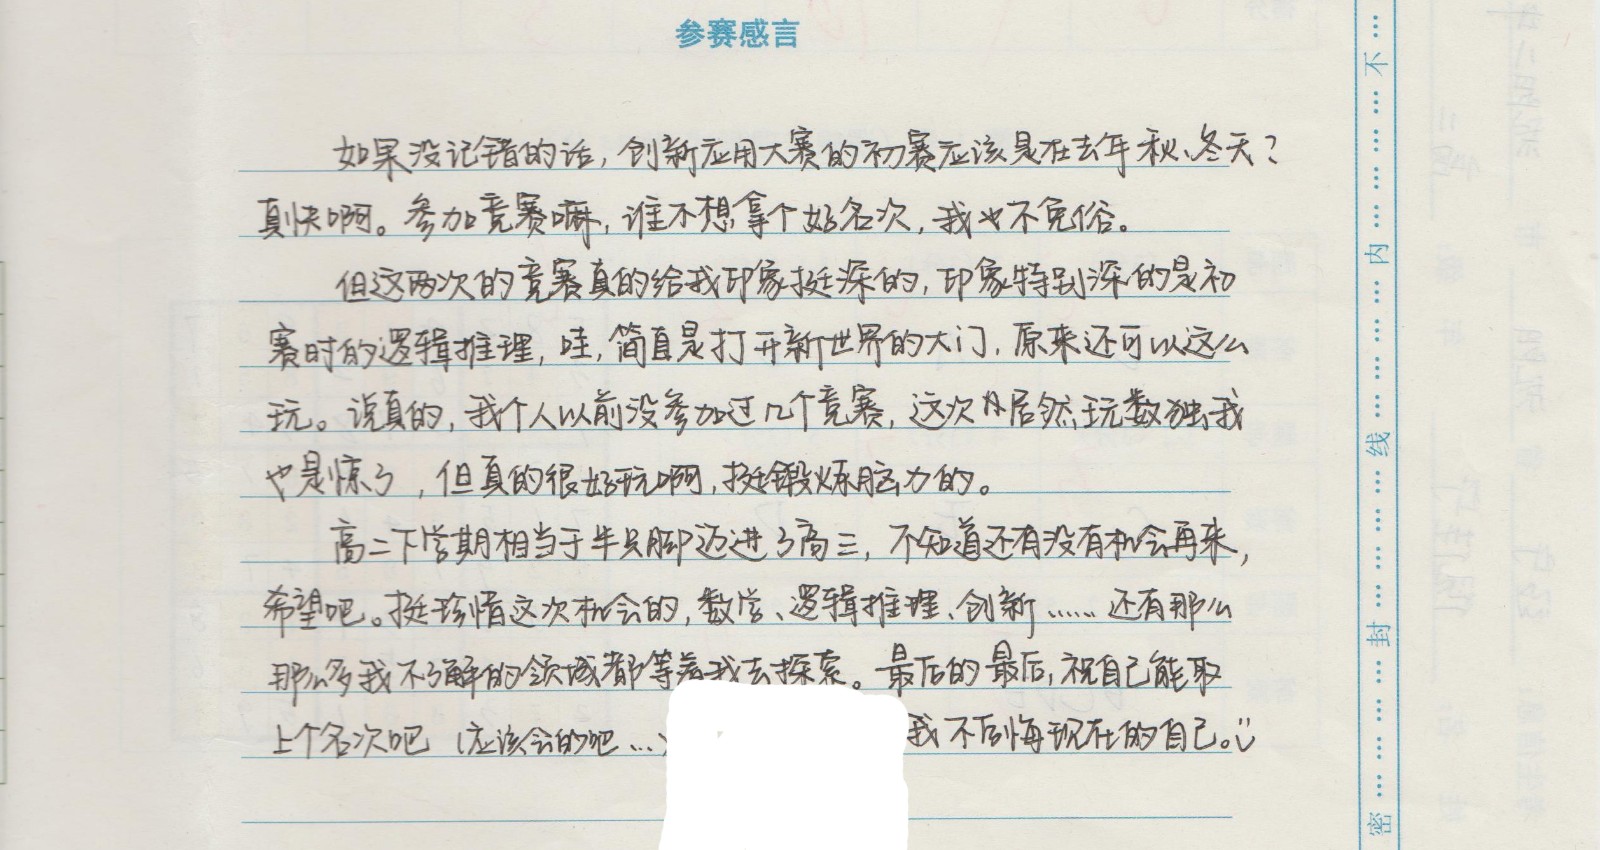 参赛感言
如果没记错的话，创新应用大赛的初赛应该是在去年秋、冬天？
真快啊。参加竞赛嘛，谁不想拿个好名次，我也不免俗。
但这两次的竞赛真的给我印象挺深的，印象特别深的是初
赛时的逻辑推理，哇，简直是打开新世界的大门，原来还可以这么
玩。说真的，我个人以前没参加过几个竞赛，这次居然玩数独我
也是惊了，但真的很好玩啊，挺锻炼脑力的。
高二下学期相当于半只脚迈进了高三，不知道还有没有机会再来，
希望吧。挺珍惜这次机会的，数学、逻辑推理、创新……还有那么
那么多我不了解的领域都等着我去探索。最后的最后，祝自己能取
上个名次吧（应该会的吧…）我不后悔现在的自己。
密……封……线……内……不…